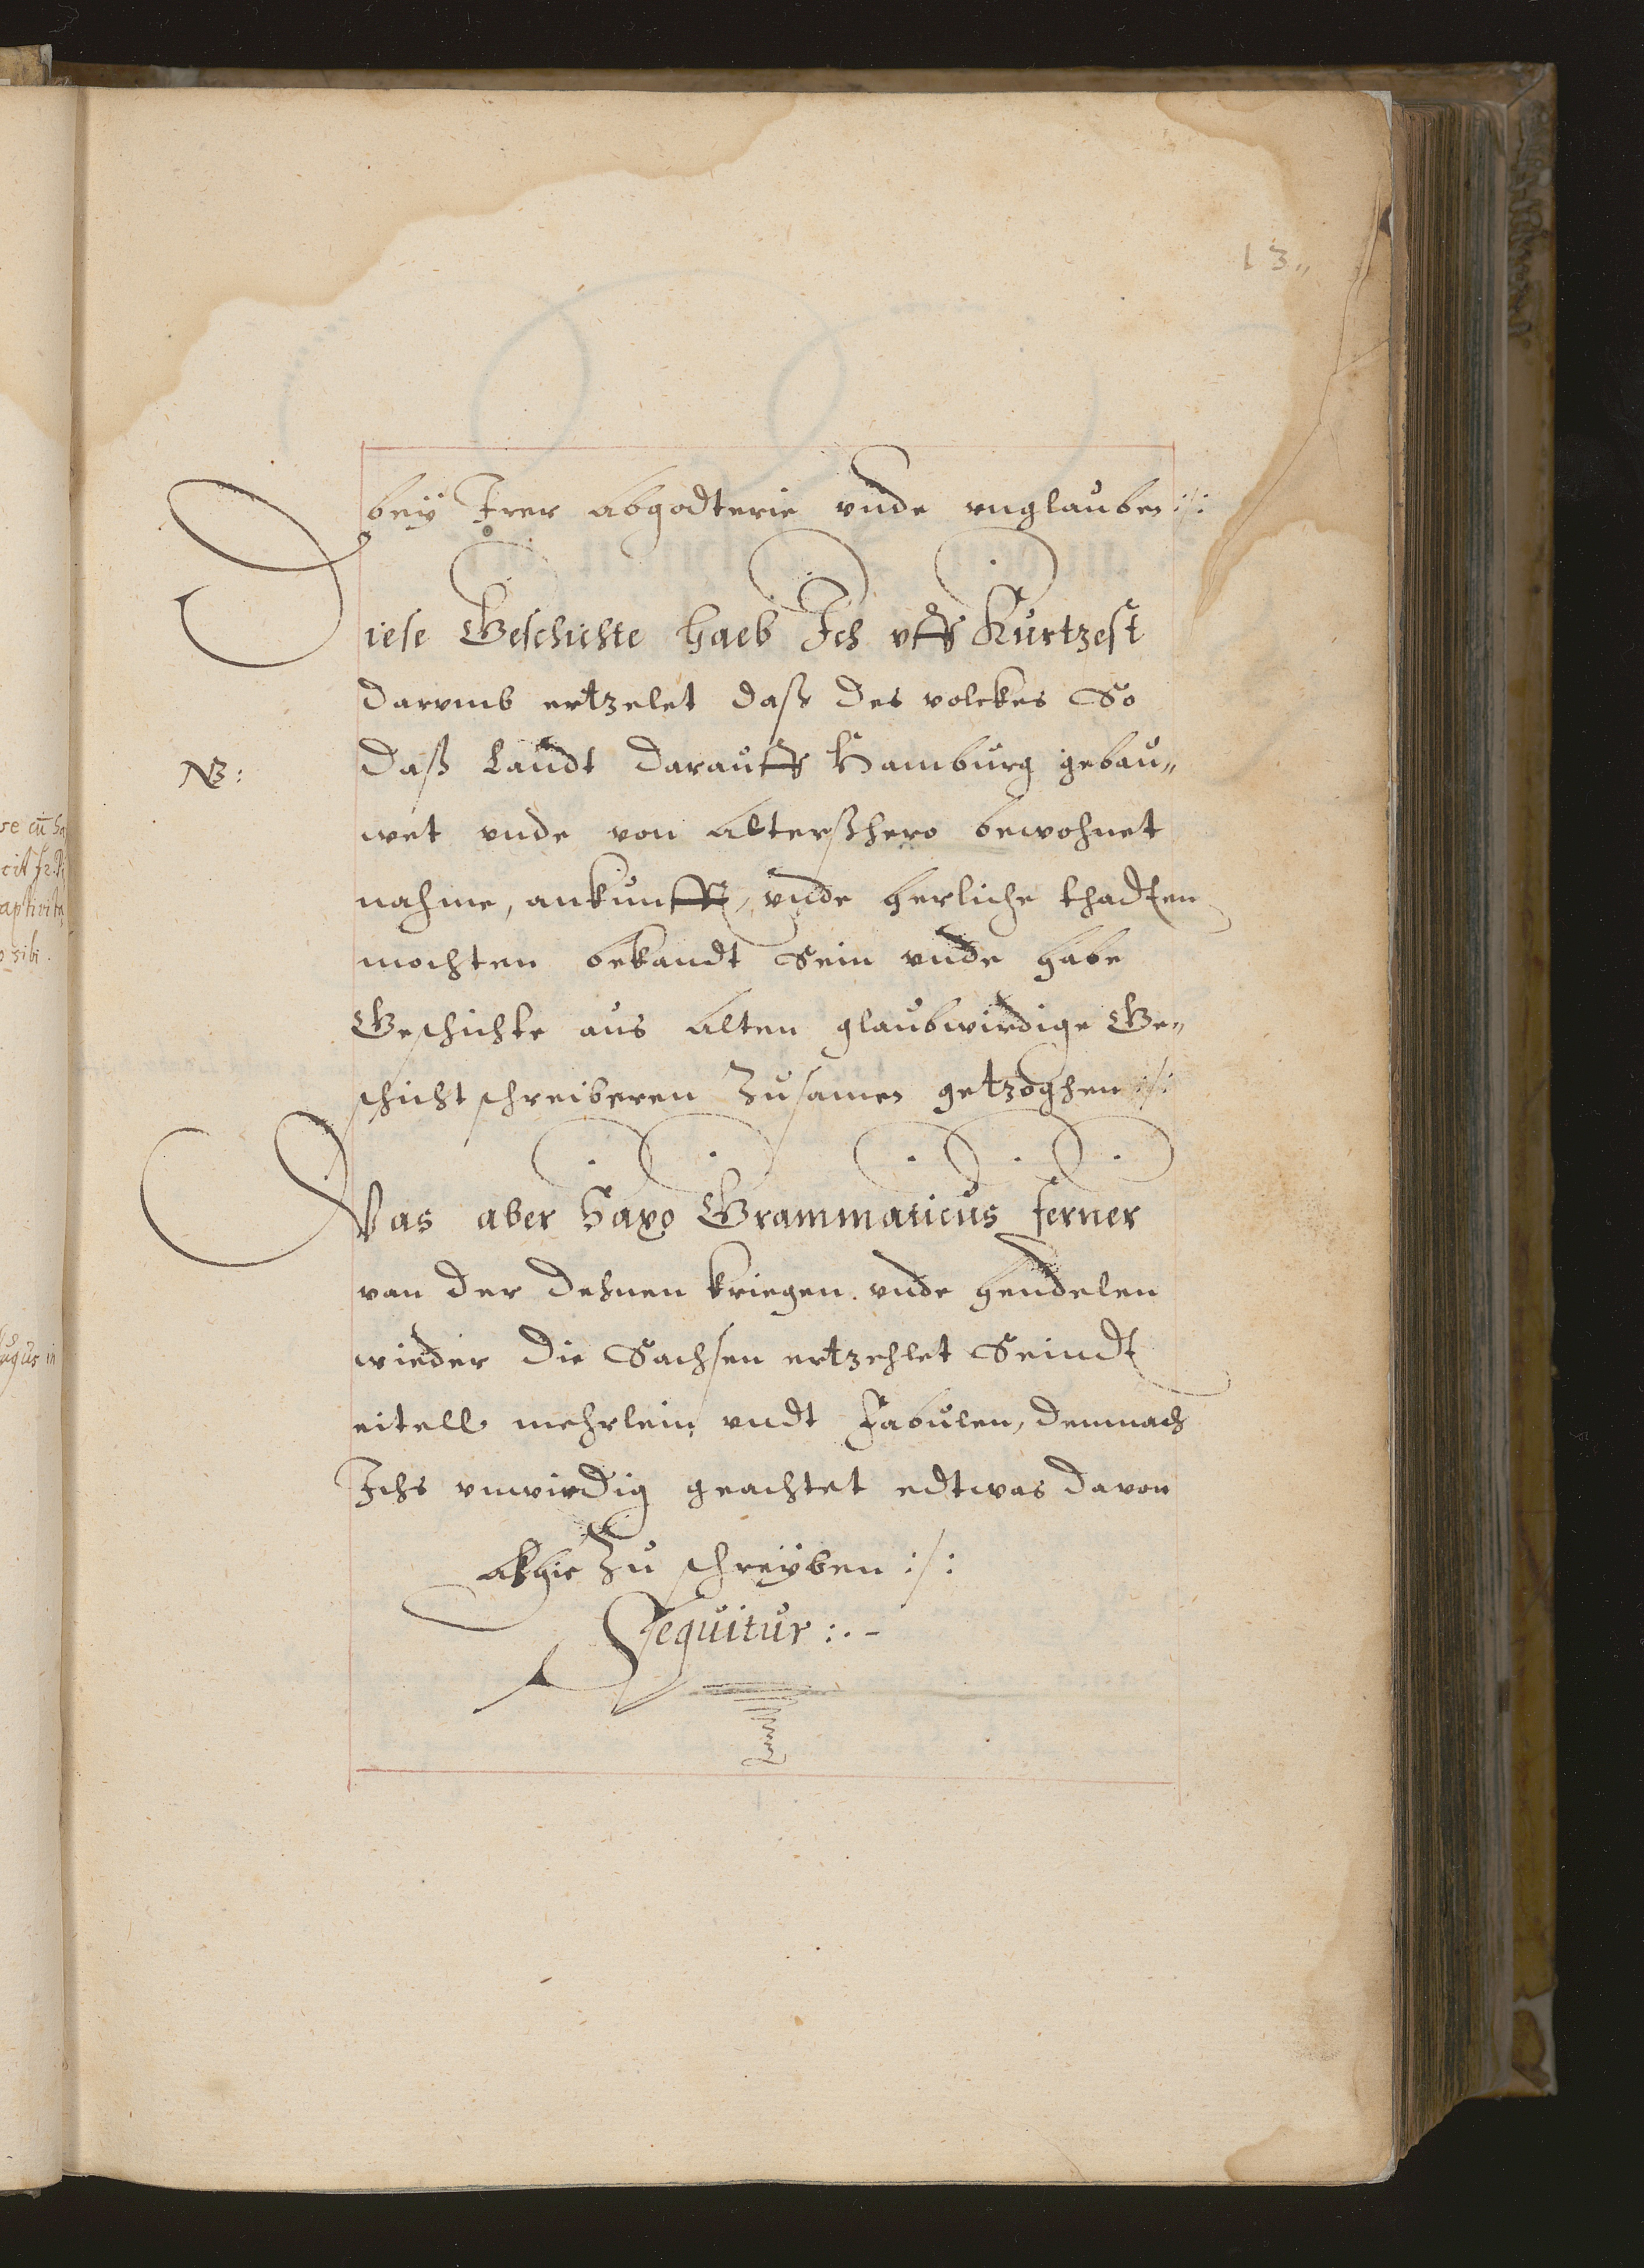 13„
bey Irer abgodterie vnde vnglauben :/:
Diese Geschichte haeb Ich vffs Kurtzest
darvmb ertzelet daß des volckes So
NB:
daß Landt darauff Hamburg gebau„
wet vnde von altersshero bewohnet
nahme, ankunfft, vnde herliche thadten
mochten bekandt sein vnde habe
Geschichte aus alten glaubwirdige Ge„
schicht schreiberen Zusamen getzoghen :/:
Was aber Saxo Grammaticus ferner
van der Dehnen kriegen vnde hendelen
wieder die Sachsen ertzehlet Seindt
eitell mehrlein vndt Fabulen, demnach
Ichs vnwirdig geachtet edtwas davon
alhie Zu schreyben :/:
Sequitur :.-
ve cū
cit
aptivita
sibi.
agus in